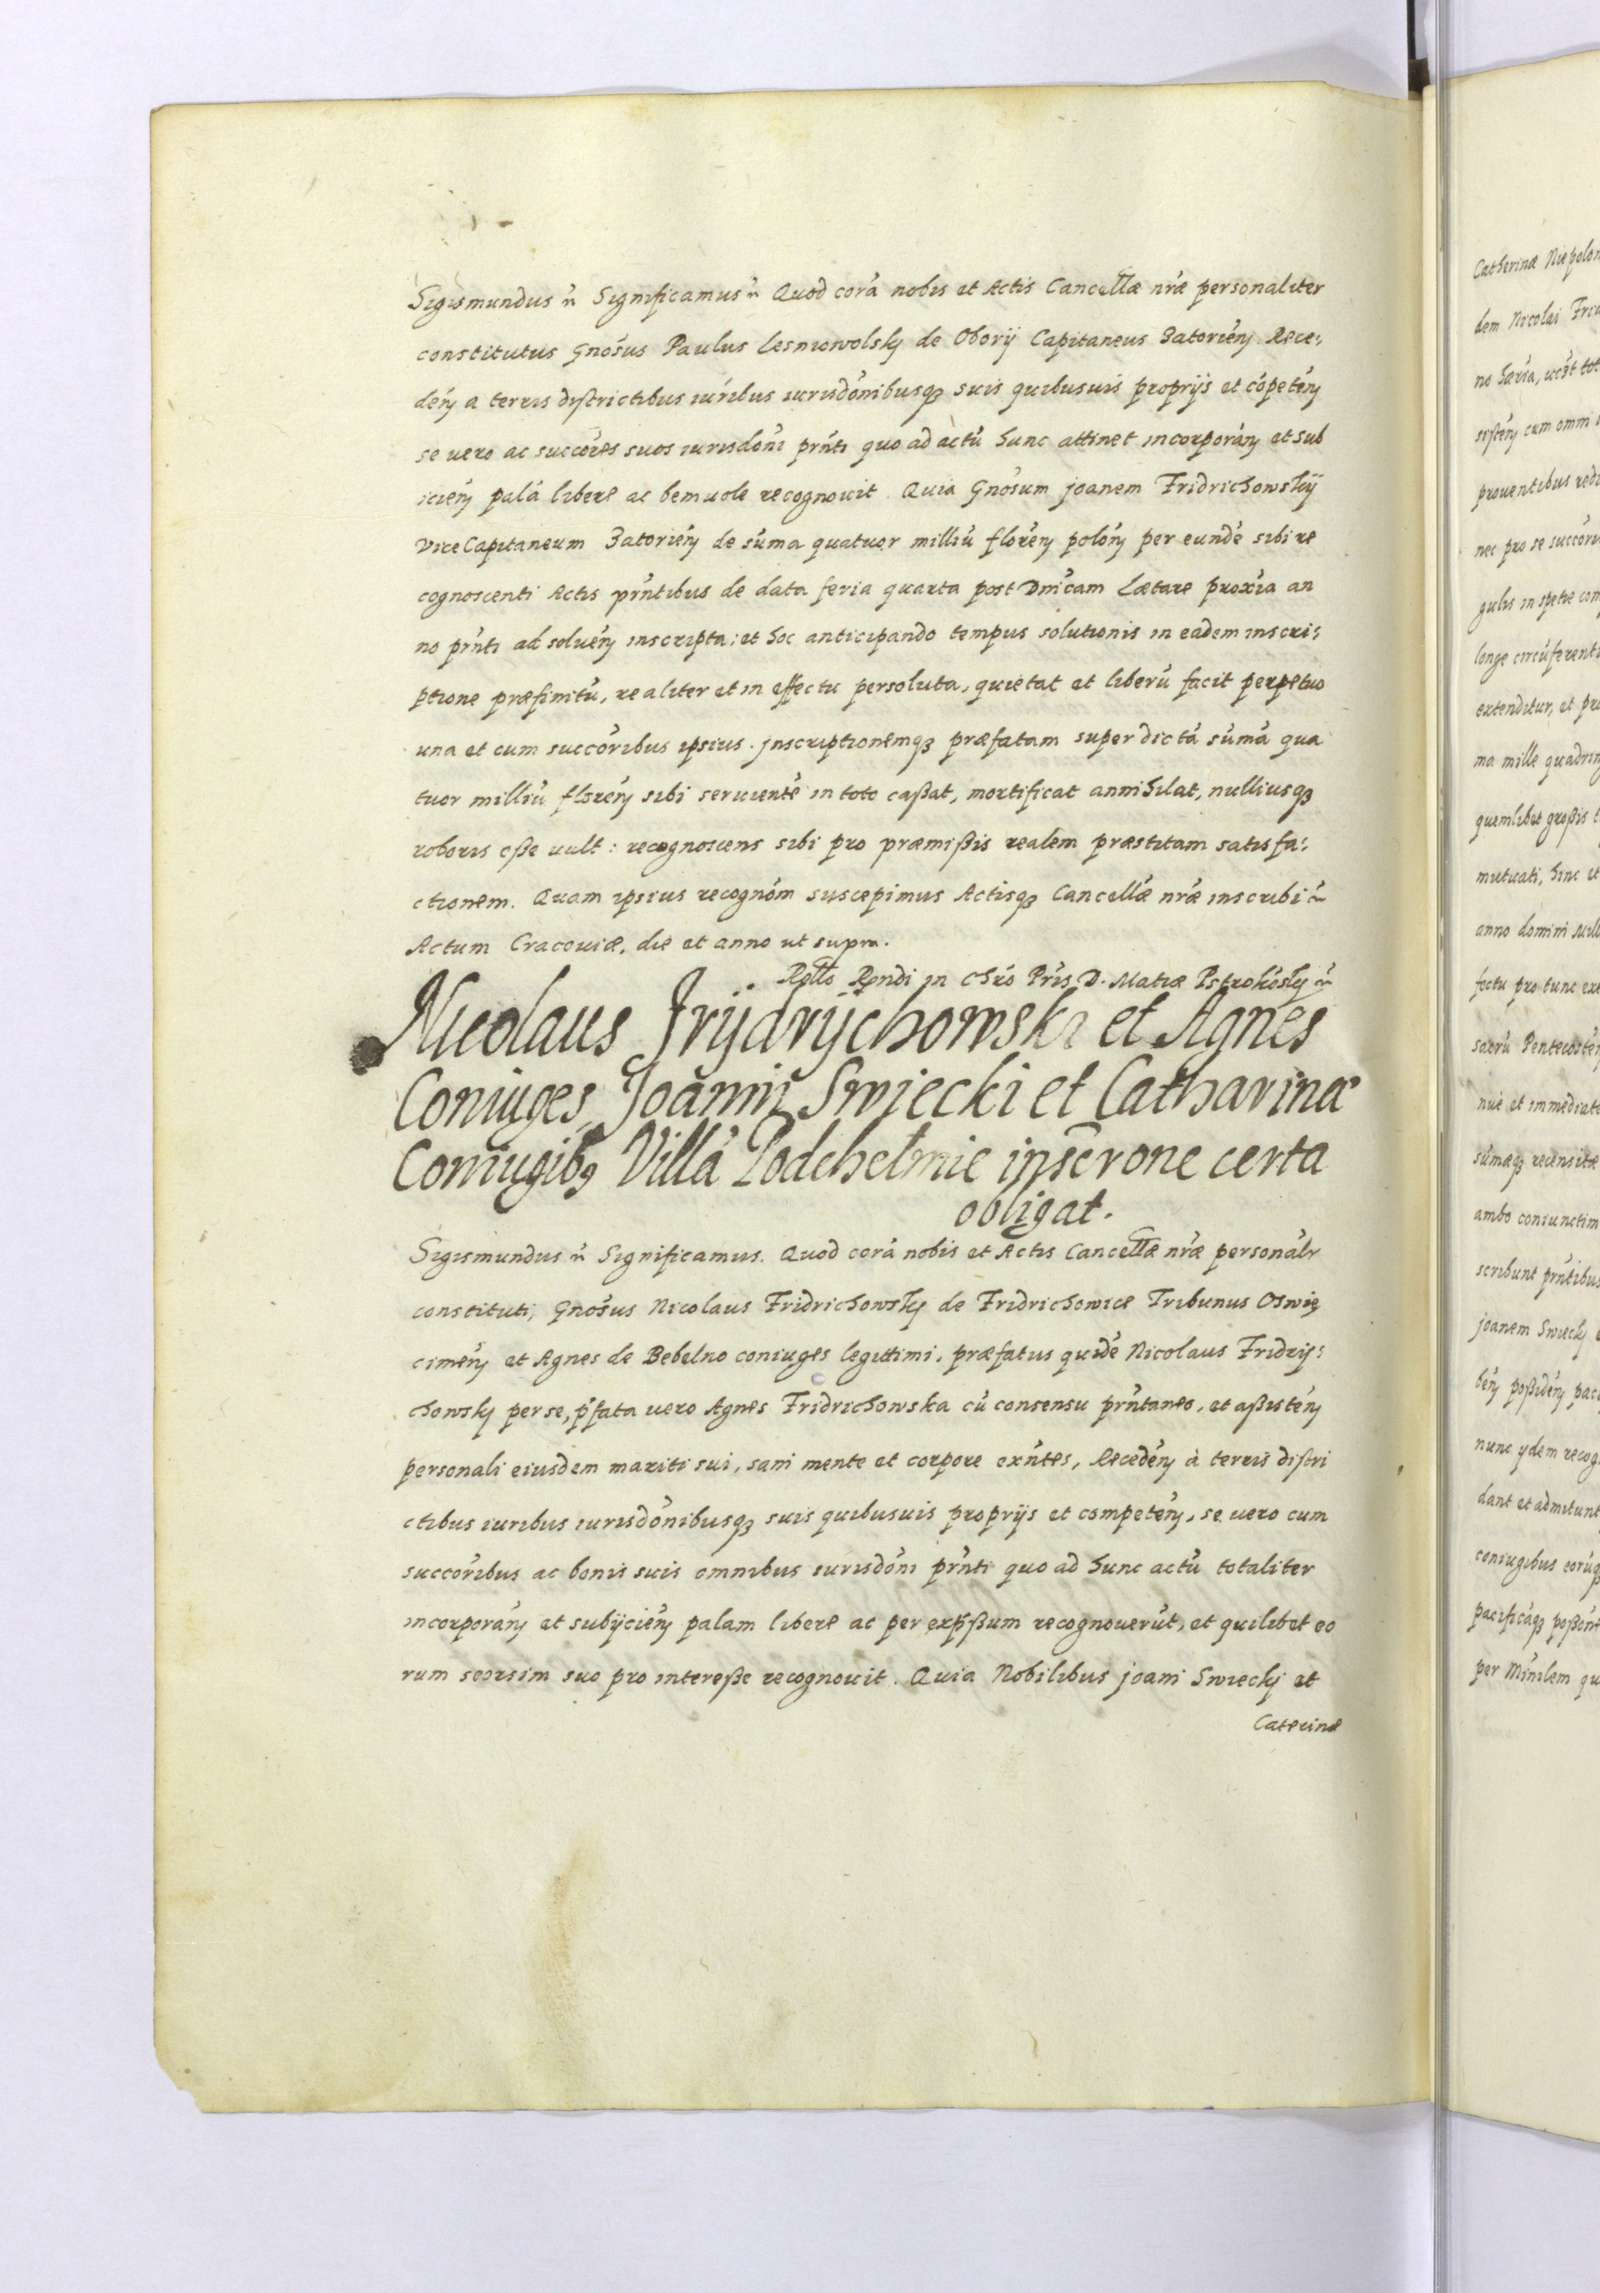 Sigismundus ñ Significamus ñ Quod corã nobis et Actis Cancellæ nr̃æ personaliter
constitutus Gnõsus Paulus Lesniowolskj de Oborÿ Capitaneus Zatorień Rece:
deń a terris districtibus iuribus iurisdõnibusqз suis quibusuis proprijs et cõpeteń
se uero ac succõres suos iurisdõni prñti quo ad actũ hunc attinet incorporań et sub
icień palã libere ac beniuole recognouit. Quia Gnõsum Joanem Fridrichowskÿ
ViceCapitaneum Zatorień de sũma quatuor milliũ floreń poloń per eundẽ sibi re
cognoscenti Actis prñtibus de data feria quarta post Dnicam Lætare proxĩa an
no prñti ad solueń inscripta: et hoc anticipando tempus solutionis in eadem inscri:
ptione præfinitũ, realiter et in effectu persoluta, quietat et liberũ facit perpetuo
una et cum succõribus ipsius. Inscriptionemqз præfatam super dictã sũmã qua
tuor milliũ floreń sibi seruientẽ in toto caßat, mortificat annihilat, nulliusqз
roboris eße uult: recognoscens sibi pro præmißis realem præstitam satisfa:
ctionem. Quam ipsius recognõm suscepimus Actisqз Cancellæ nr̃æ inscribi ñ
Actum Cracouiæ, die et anno ut supra.
Rello Rendi in Chrõ Pr̃is D. Matiæ Pstrokõskj ñ
Nicolaus Frÿdrÿchowski et Agnes
Coniuges, Joãnni Swiecki et Catharinæ
Coniugibꝫ Villã Podchelmie inscrone certa
obligat.
Sigismundus ñ Significamus. Quod corã nobis et Actis Cancellæ nr̃æ personalr̃
constituti, Gnõsus Nicolaus Fridrichowskj de Fridrichowice Tribunus Oswię
cimeń et Agnes de Bebelno coniuges legittimi, præfatus quidẽ Nicolaus Fridry:
chowskj per se, p̃fata uero Agnes Fridrichowska cũ consensu prñtaneo, et aßisteń
personali eiusdem mariti sui, sani mente et corpore exñtes, Recedeń à terris distri
ctibus iuribus iurisdõnibusqз suis quibusuis proprijs et competeń, se uero cum
succõribus ac bonis suis omnibus iurisdõni prñti quo ad hunc actũ totaliter
incorporań et subÿcień palam libere ac per exp̃ßum recognouerũt, et quilibet eo
rum seorsim suo pro intereße recognouit. Quia Nobilibus Joani Swieckj et
Caterinæ
Catherinæ Niepolom
dem Nicolai Frid
sisteń cum omni
prouentibus redi
nec pro se succõri
gulis in spetie com
longe circũferenti
extenditur, et pro
ma mille quadrin
quemlibet großis t
mutuati, hinc it
anno domini mill
fectu pro tunc exe
sacrũ Pentecosteń
nue et immediate
sũmaqз recensitæ
ambo coniunctim
scribunt prñtibus
Joanem Swieckj e
beń poßideń paci
nunc ydem recog
dant et admitunt
coniugibus eorũq
pacificaqз poßeño
per Minilem qu